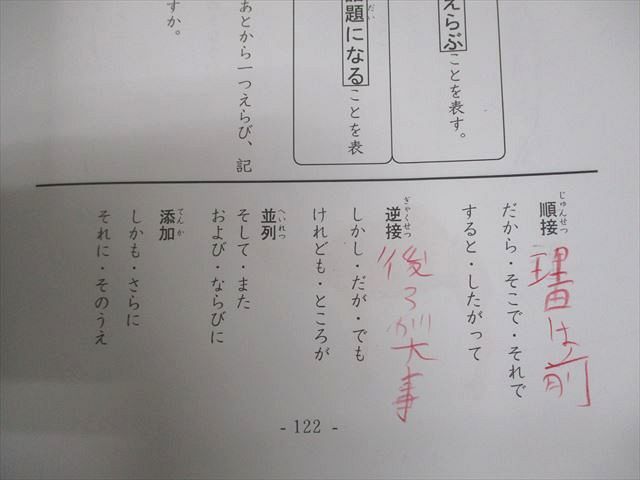 えらぶことを表す。
話題になることを表
あとから一つえらび、記
すか。
順接
じゅんせつ
理由は前
だから・そこで・それで
すると・したがって
逆接
ぎゃくせつ
後ろが大事
しかし・だが・でも
けれども・ところが
並列
へいれつ
そして・また
および・ならびに
添加
てんか
しかも・さらに
それに・そのうえ
- 122 -